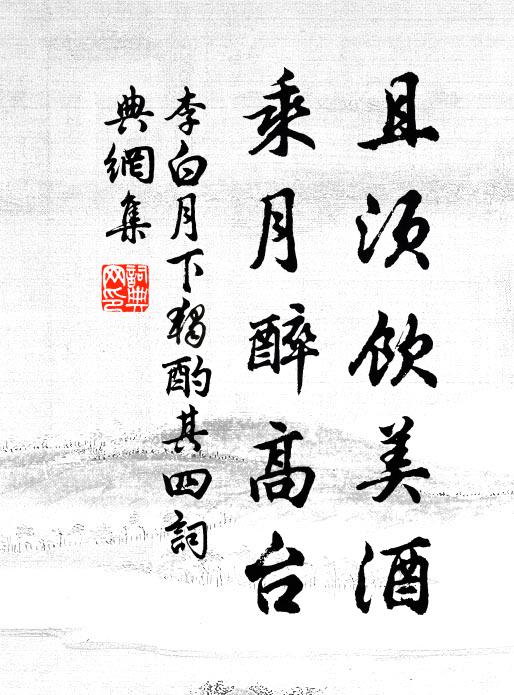 且须饮美酒
乘月醉高台
李白月下独酌其四詞
典網集
詞典网印